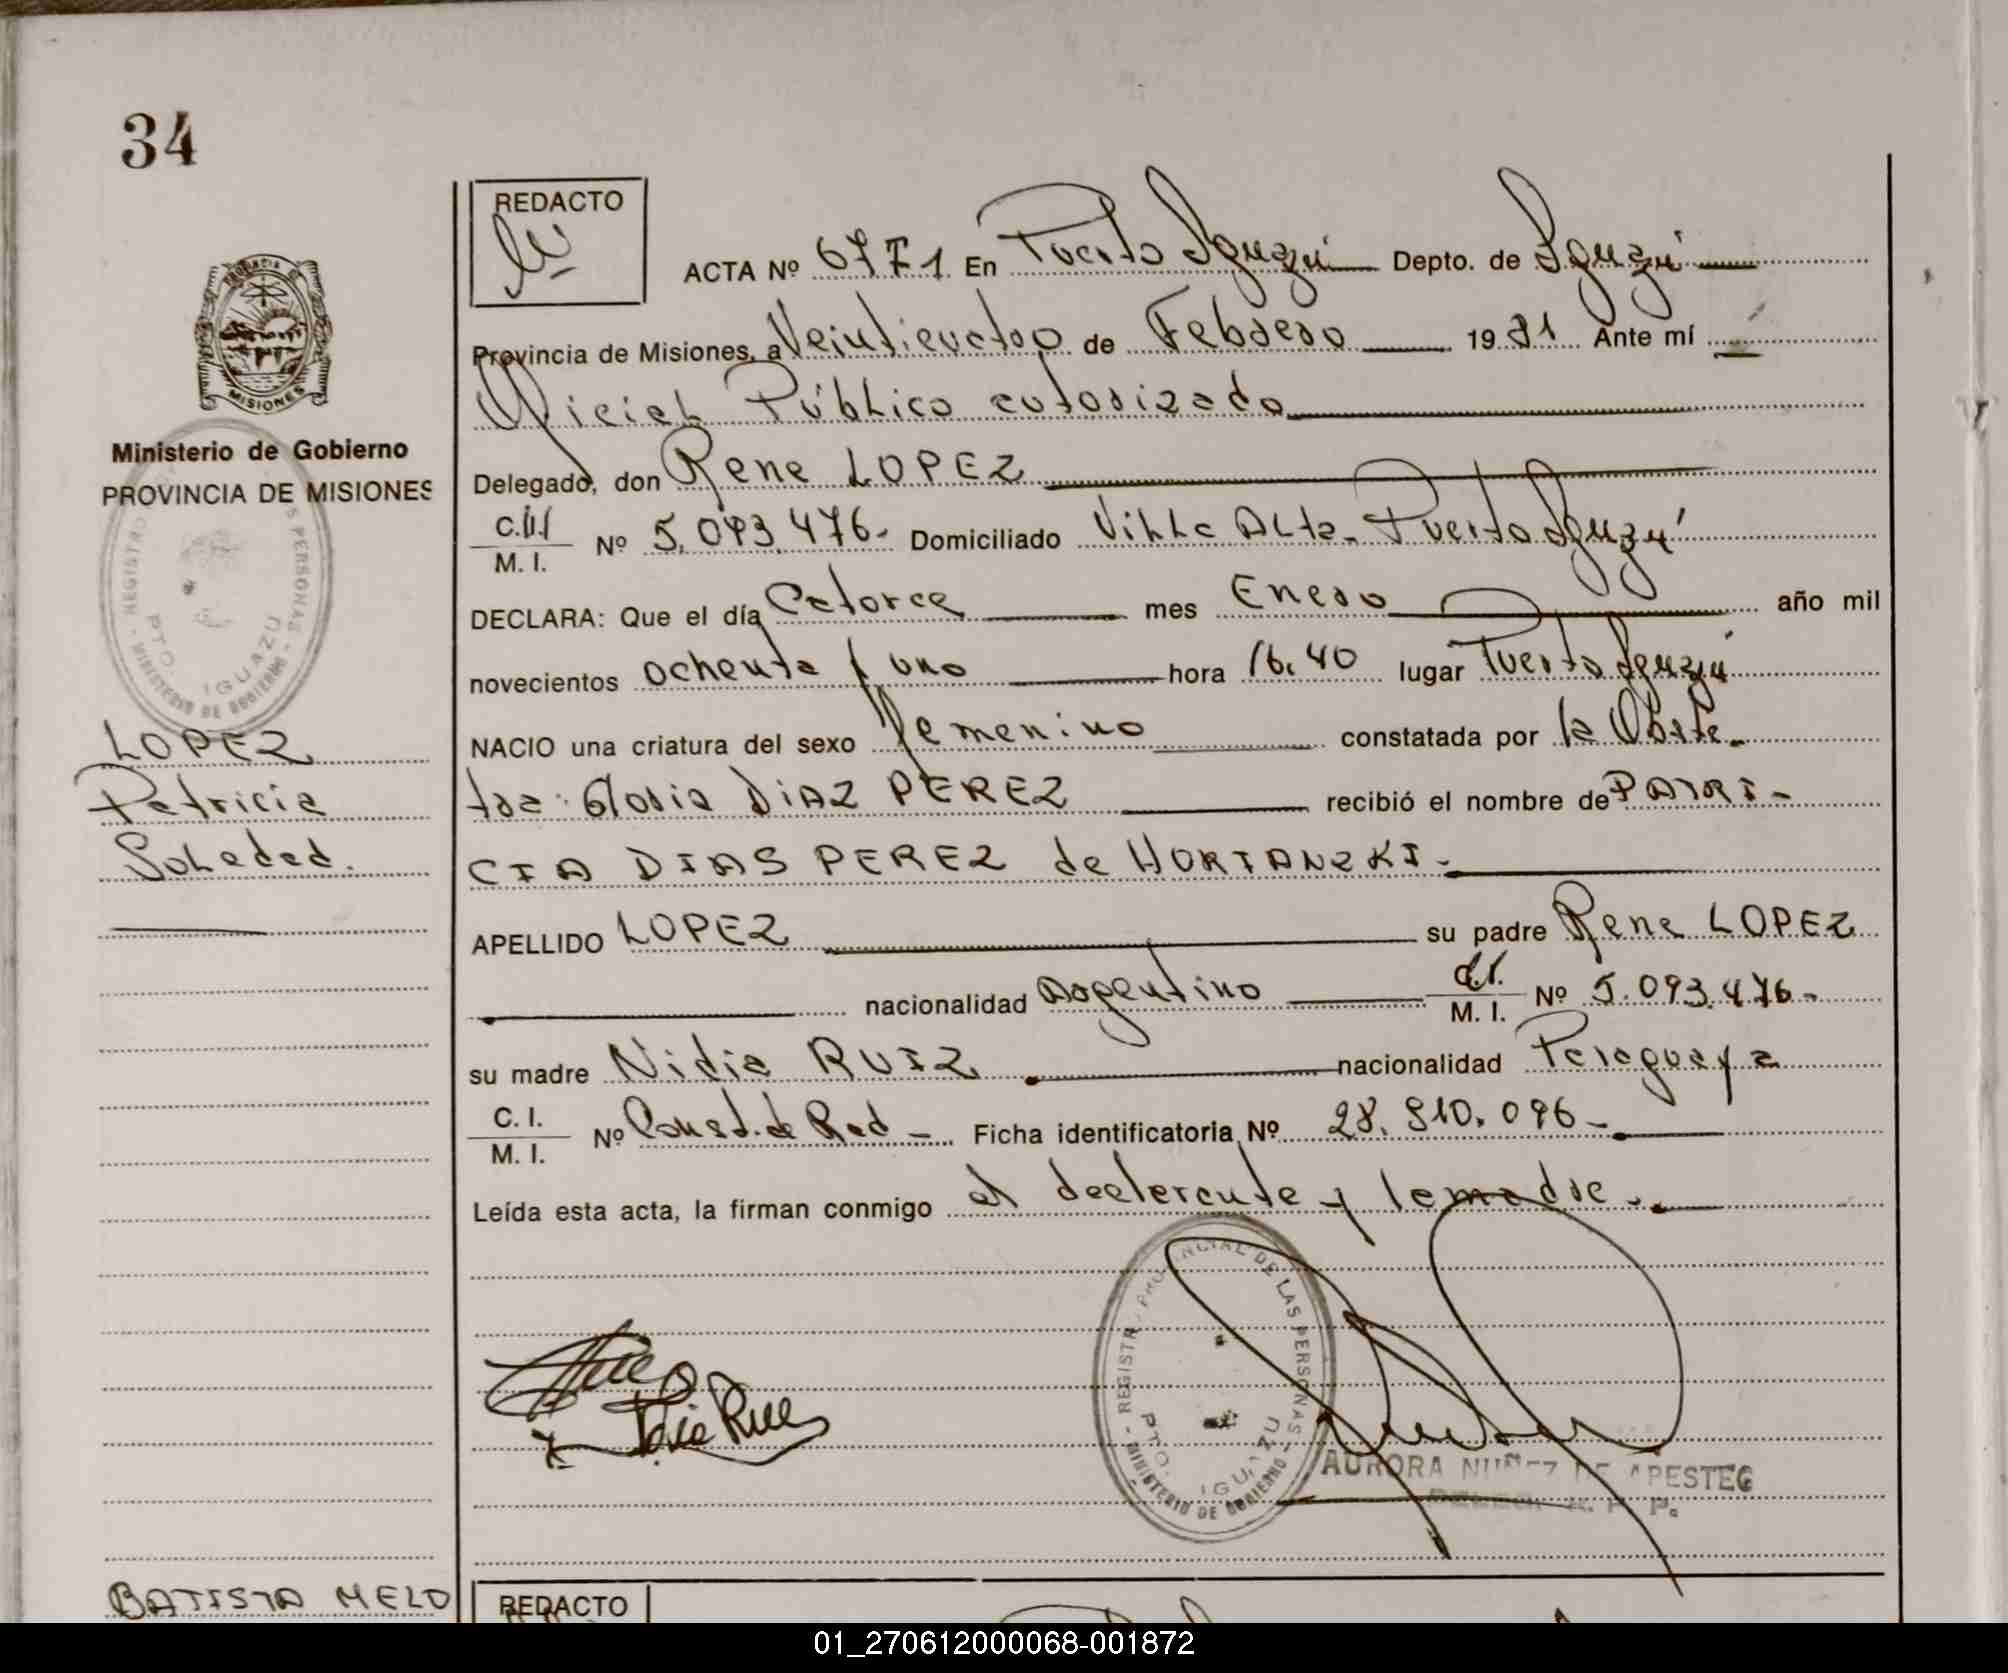 34
REDACTO
ACTA Nº 67 F1 En Puerto Iguazú Depto. de Iguazú
Provincia de Misiones, a Veintieuctro de Febrero 1981 Ante mí
Oficial Público autorizado
Delegado, don Rene LOPEZ
C.I.
M. I.
Nº 5.093.476.- Domiciliado Villa Alta. Puerto Iguazú
DECLARA: Que el día Catorce mes Enero año mil
novecientos ochenta y uno hora 16.40 lugar Puerto Iguazú
NACIO una criatura del sexo femenino constatada por la Obste-
tra: Gloria DIAZ PEREZ recibió el nombre de PATRI-
CIA DIAS PEREZ de HORIANZKI.-
APELLIDO LOPEZ su padre Rene LOPEZ
nacionalidad Argentino C.I. M. I. Nº 5.093.476-
su madre Nidia RUIZ nacionalidad Paraguaya
C. I.
M. I.
Nº Const. de Rad - Ficha identificatoria Nº 28.810.096-
Leída esta acta, la firman conmigo el declarante y la madre.
PROVINCIA DE
MISIONES
Ministerio de Gobierno
PROVINCIA DE MISIONES
REGISTRO PERSONAS - MINISTERIO DE GOBIERNO -
PTO. IGUAZU
LOPEZ
Patricia
Soledad.
REGISTRO PROVINCIAL DE LAS PERSONAS - MINISTERIO DE GOBIERNO -
PTO. IGUAZU
AURORA NUÑEZ DE APESTEG
BATISTA MELO
REDACTO
01_270612000068-001872